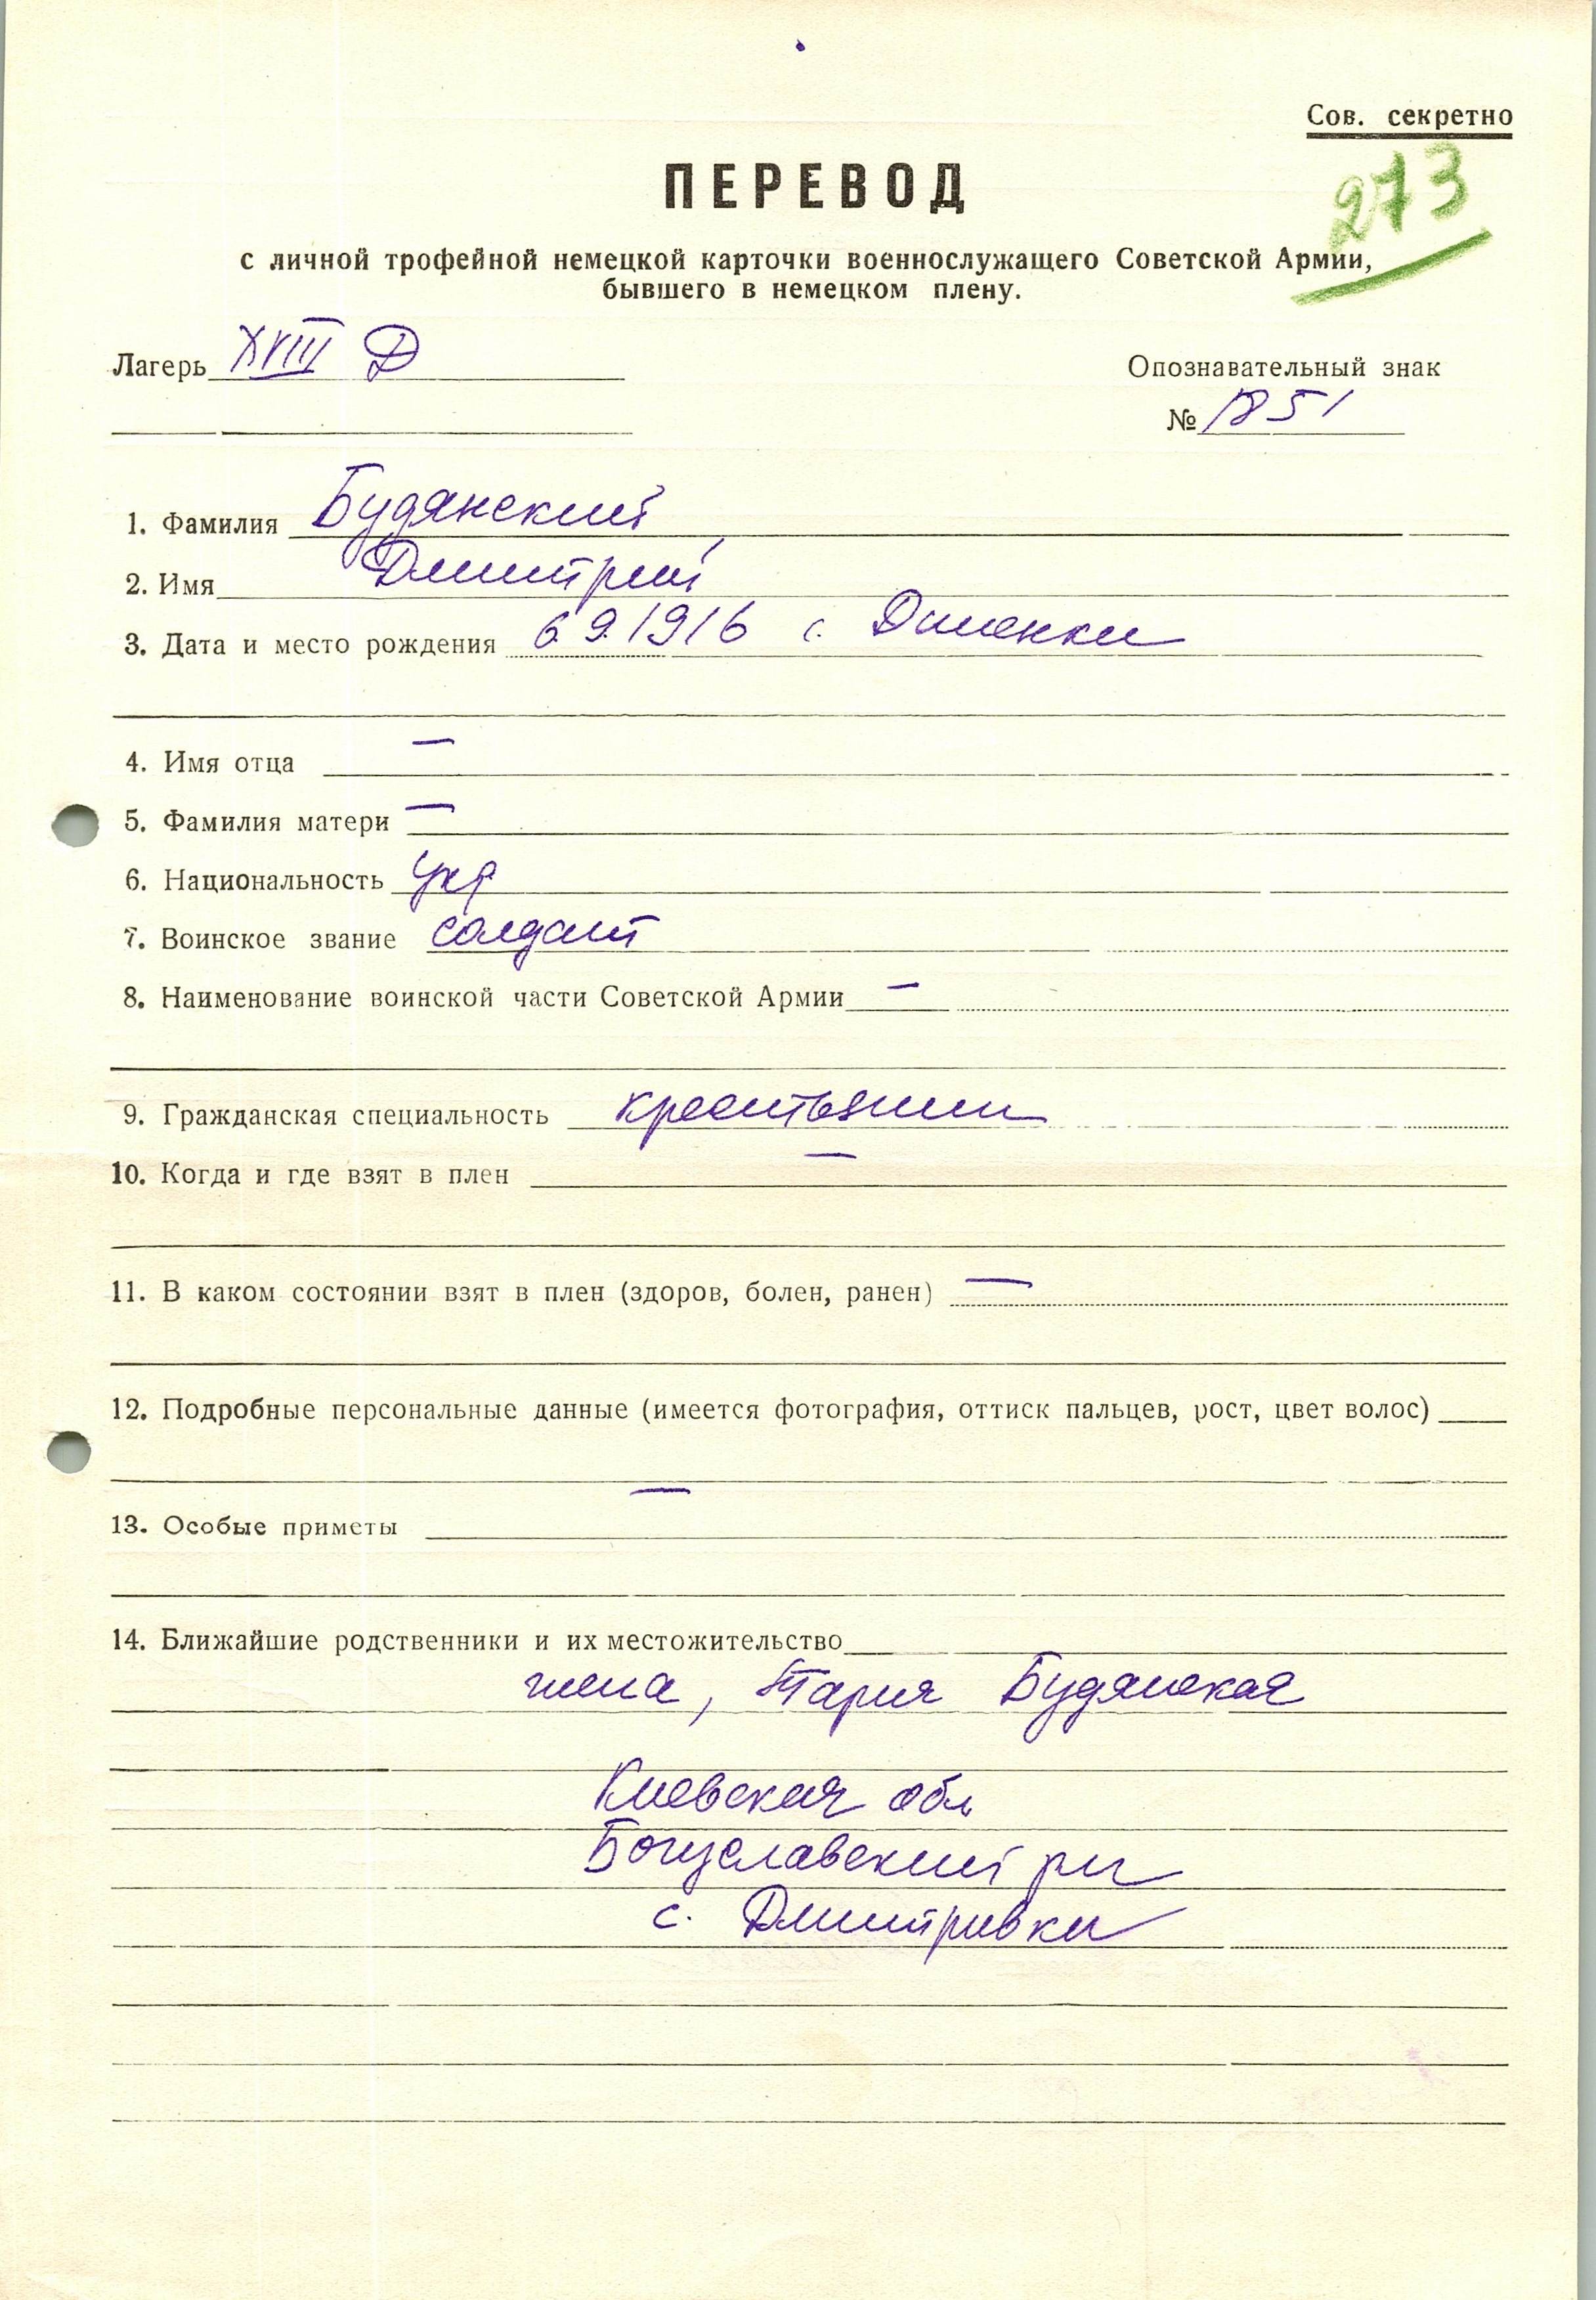 Сов. секретно
273
ПЕРЕВОД
с личной трофейной немецкой карточки военнослужащего Советской Армии,
бывшего в немецком плену.
Лагерь XVIII Д
Опознавательный знак
№ 1851
1. Фамилия Будянский
2. Имя Дмитрий
3. Дата и место рождения 6.9.1916 с.
4. Имя отца —
5. Фамилия матери —
6. Национальность укр
7. Воинское звание солдат
8. Наименование воинской части Советской Армии —
9. Гражданская специальность крестьянин
10. Когда и где взят в плен —
11. В каком состоянии взят в плен (здоров, болен, ранен) —
12. Подробные персональные данные (имеется фотография, оттиск пальцев, рост, цвет волос)
—
13. Особые приметы
14. Ближайшие родственники и их местожительство
жена, Мария Будянская
Киевская обл
Богуславский рн
с. Дмитривки